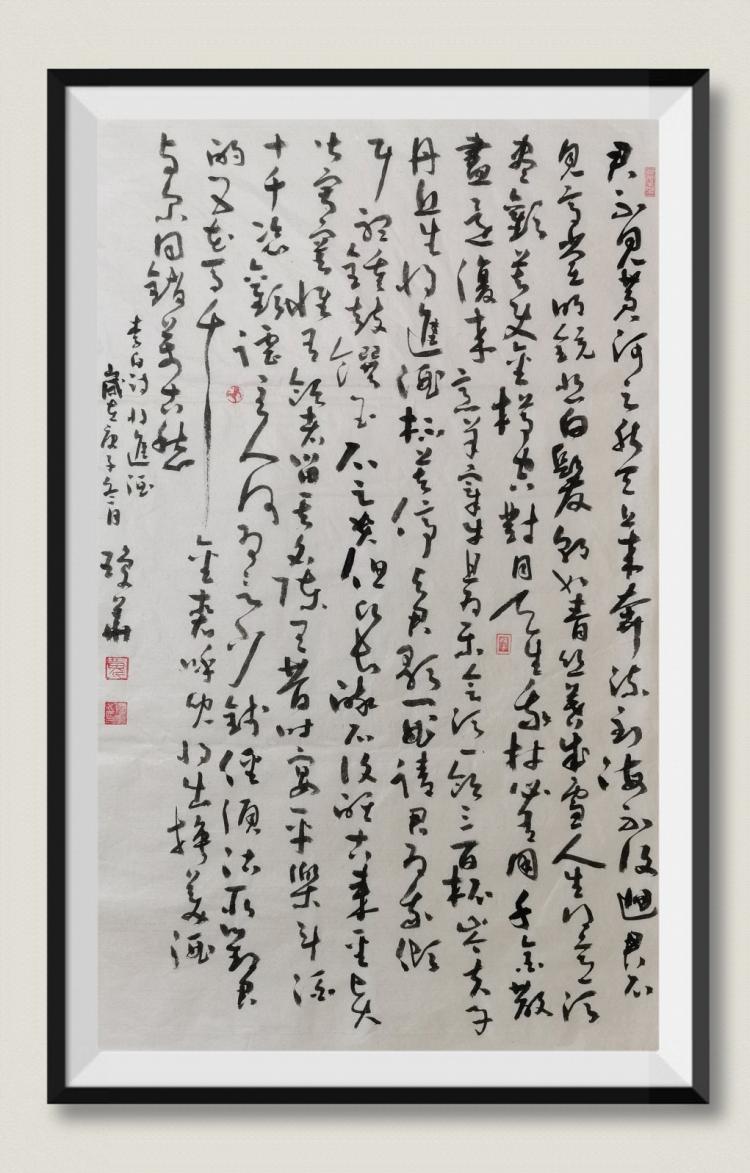 君不见黄河之水天上来奔流到海不復迴君不
见高堂明镜悲白髮朝如青丝暮成雪人生得意须
尽歡莫使金樽空對月天生我材必有用千金散
盡还復来烹羊宰牛且为乐会须一饮三百杯岑夫子
丹丘生将進酒杯莫停与君歌一曲请君为我倾
耳聽鐘鼓饌玉不足贵但願长醉不復醒古来圣贤
皆寂寞惟有饮者留其名陈王昔时宴平樂斗酒
十千恣歡谑主人何为言少錢径须沽取對君
酌五花马千金裘呼儿将出换美酒
与尔同銷萬古愁
李白诗将進酒
歲在庚子冬月